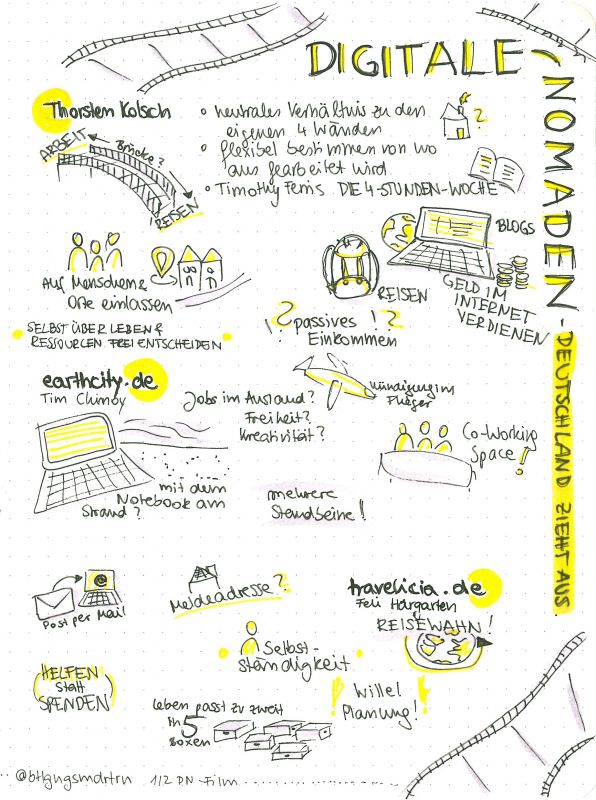 DIGITALE
NOMADEN - DEUTSCHLAND ZIEHT AUS
Thorsten Kolsch
ARBEIT
Brücke?
REISEN
• neutrales Verhältnis zu den
eigenen 4 Wänden
• flexibel bestimmen von wo
aus gearbeitet wird
• Timothy Ferris DIE 4-STUNDEN-WOCHE
?
Auf Menschen &
Orte einlassen
• SELBST ÜBER LEBEN &
RESSOURCEN FREI ENTSCHEIDEN •
REISEN
BLOGS
GELD IM
INTERNET
VERDIENEN
!? passives !?
Einkommen
earthcity.de
Tim Chimoy
Jobs im Ausland?
Freiheit?
Kreativität?
mit dem
Notebook am
Strand?
Kündigung im
Flieger
Co-Working
Space!
mehrere
Standbeine!
@
Post per Mail
Meldeadresse?
travelicia.de
Feli Hargarten
REISEWAHN!
• Selbst-
ständigkeit •
HELFEN
statt
SPENDEN
! Planung!
Leben passt zu zweit
in 5
Boxen
@btlgngsmdrtrn 1/2 DN-Film